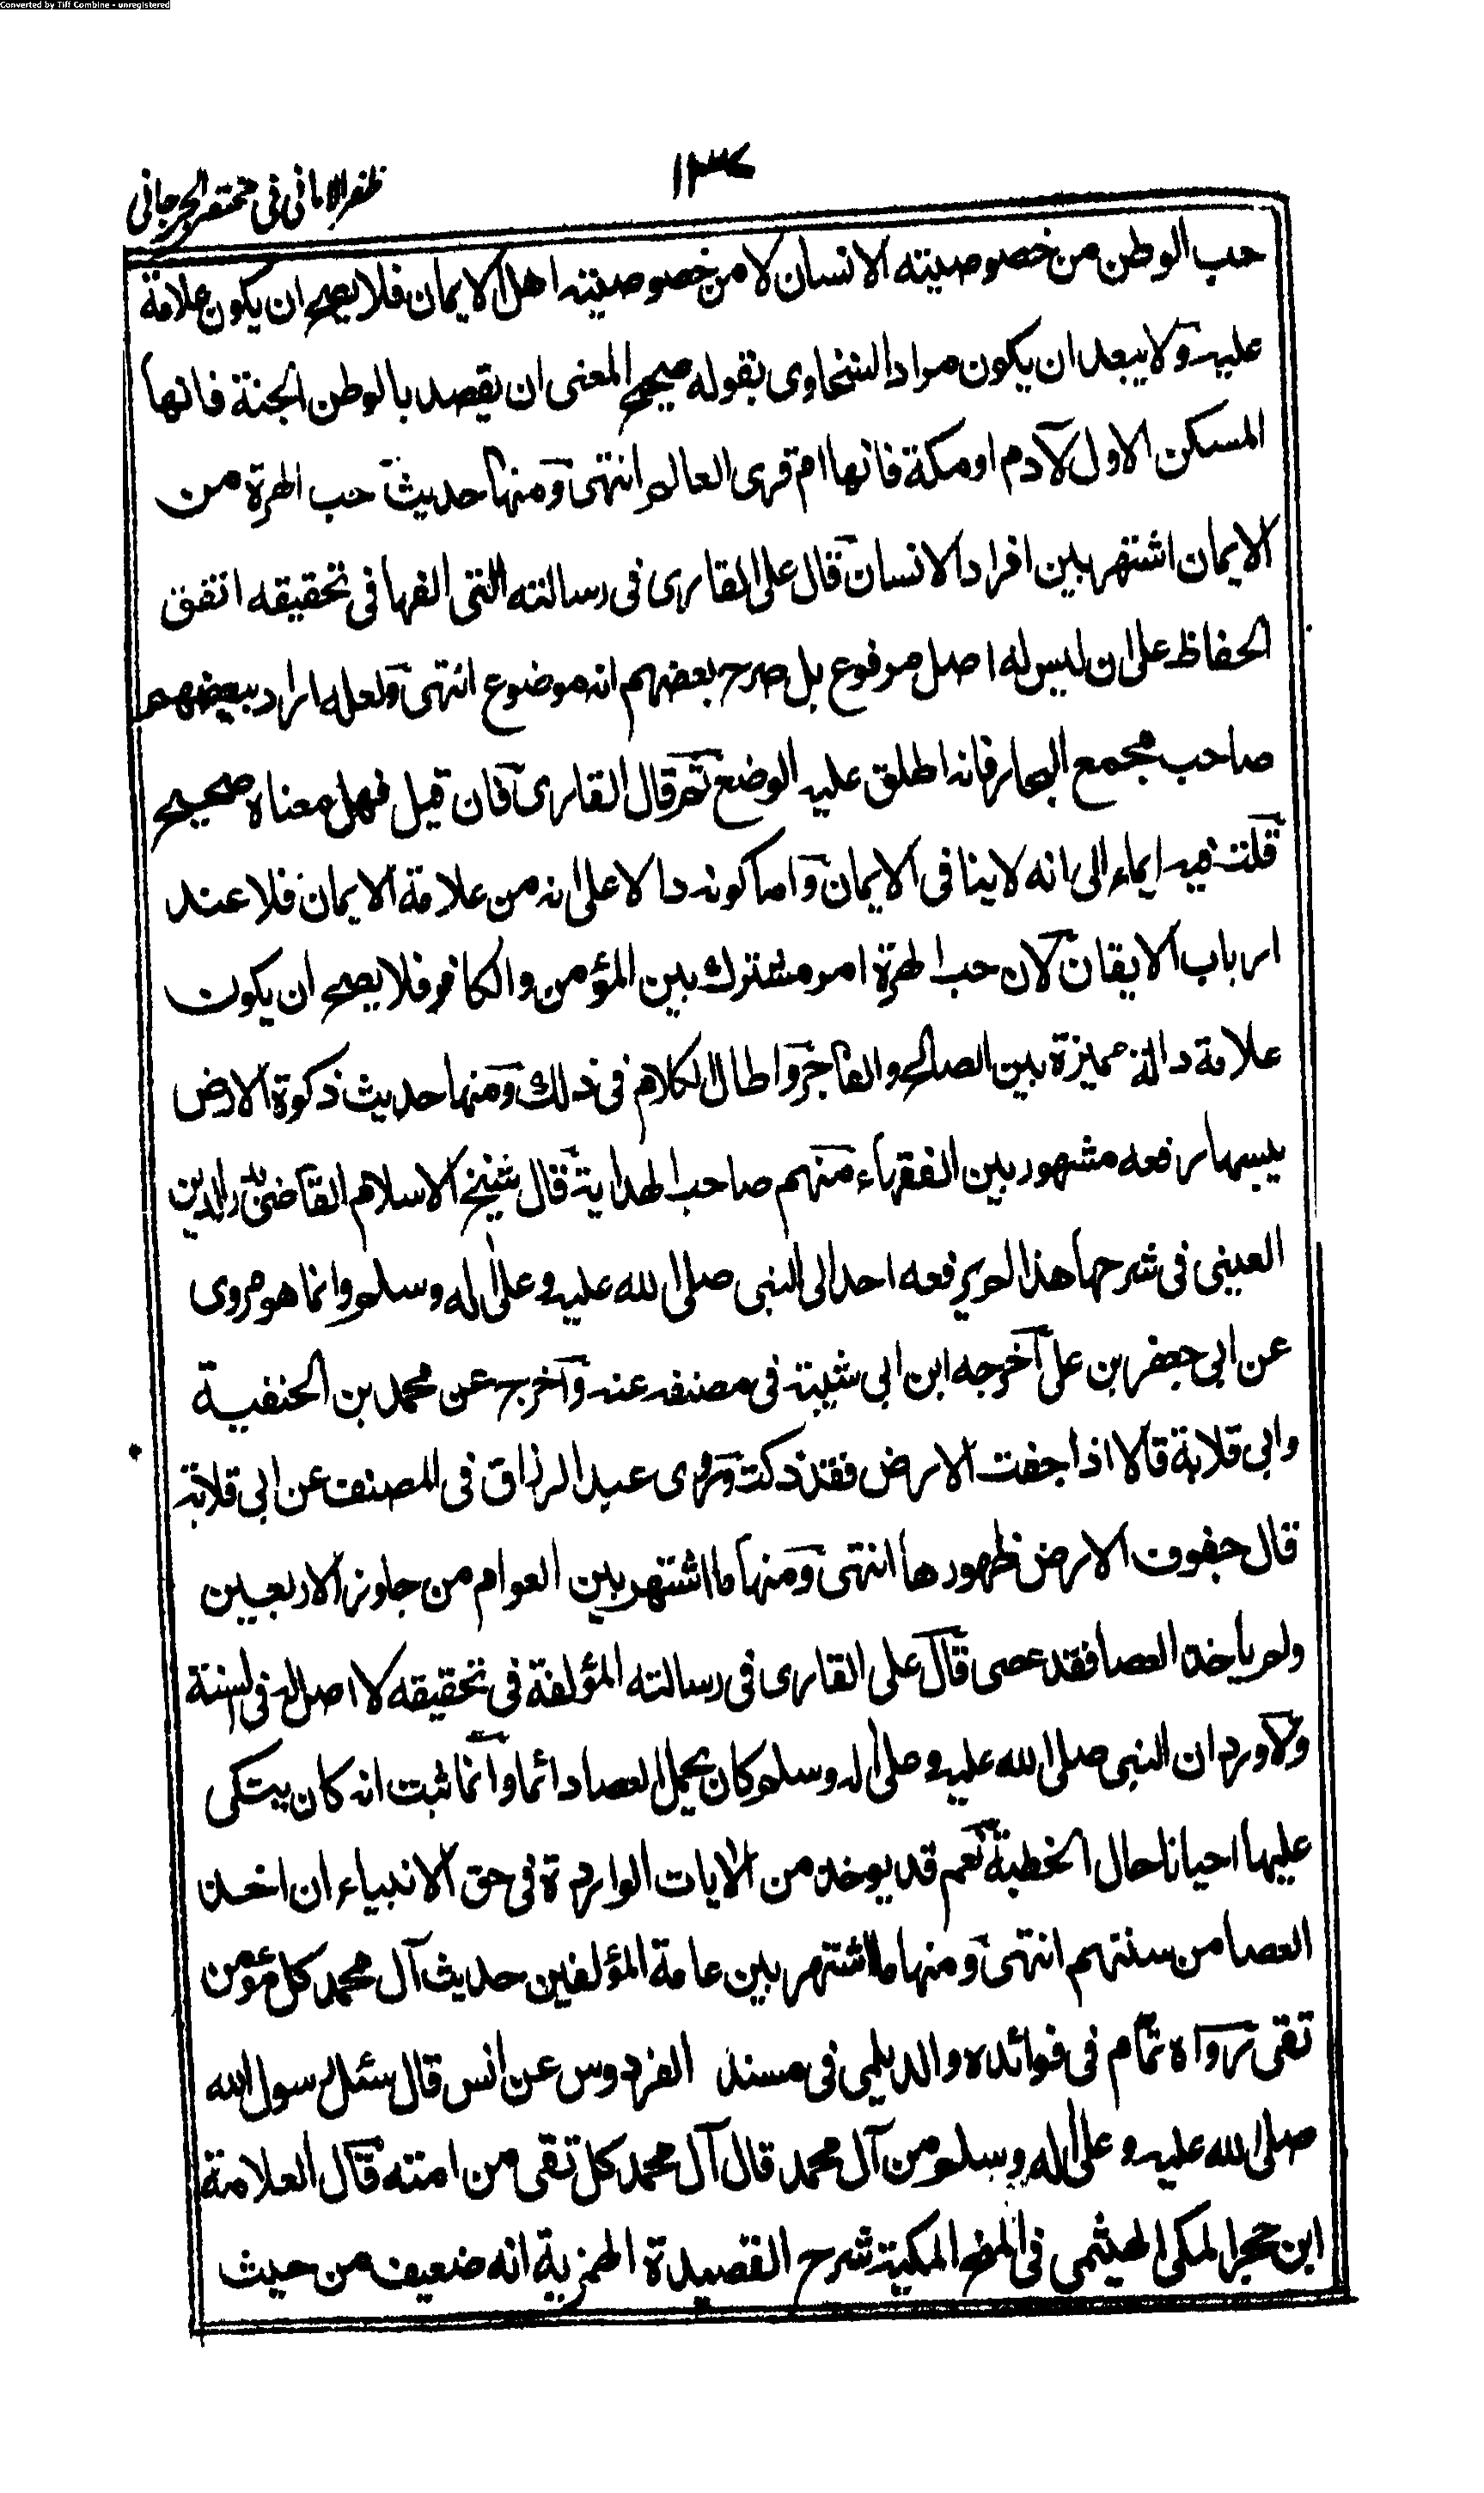 Converted by Tiff Combine - unregistered
ظفر الامانی فی مختصر الجرجانی
حب الوطن من خصوصیته الانسان لا من خصوصیته اهل الایمان فلا یصح ان یکون علامة
علیه ولا یبعد ان یکون مراد السخاوی بقوله صحیح المعنی ان یقصد بالوطن الجنة فانها
المسکن الاول لآدم او مکة فانها ام قری العالم انتهی ومنها حدیث حب الهرة من
الایمان اشتهر بین افراد الانسان قال علی القاری فی رسالته التی الفها فی تحقیقه اتفق
الحفاظ علی ان لیس له اصل مرفوع بل صرح بعضهم انه موضوع انتهی ولعله اراد ببعضهم
صاحب مجمع البحار فانه اطلق علیه الوضع ثم قال القاری فان قیل فهل معناه صحیح
قلت فیه ایماء الی انه لا ینافی الایمان واما کونه دالا علی انه من علامة الایمان فلا عند
ارباب الایقان لان حب الهرة امر مشترک بین المؤمن والکافر فلا یصح ان یکون
علامة دالة ممیزة بین الصالح والفاجر واطال الکلام فی ذلک ومنها حدیث ذکوة الارض
یبسها رفعه مشهور بین الفقهاء منهم صاحب الهدایة قال شیخ الاسلام القاضی بدر الدین
العینی فی شرحها هذا لم یرفعه احد الی النبی صلی الله علیه وعلی اله وسلم وانما هو مروی
عن ابی جعفر بن علی اخرجه ابن ابی شیبة فی مصنفه عنه واخرج عن محمد بن الحنفیة
وابی قلابة قالا اذا جفت الارض فقد ذکت وروی عبد الرزاق فی المصنف عن ابی قلابة
قال جفوف الارض ظهورها انتهی ومنها ما اشتهر بین العوام من جاوز الاربعین
ولم یاخذ العصا فقد عصی قال علی القاری فی رسالته المؤلفة فی تحقیقه لا اصل له فی السنة
ولا ورد ان النبی صلی الله علیه وعلی اله وسلم کان یحمل العصا دائما وانما ثبت انه کان یتکی
علیها احیانا حال الخطبة نعم قد یوخذ من الایات الواردة فی حق الانبیاء ان اخذ
العصا من سنتهم انتهی ومنها ما اشتهر بین عامة المؤلفین حدیث آل محمد کل مؤمن
تقی رواه تمام فی فوائده والدیلمی فی مسند الفردوس عن انس قال سئل رسول الله
صلی الله علیه وعلی اله وسلم من آل محمد قال آل محمد کل تقی من امته قال العلامة
ابن حجر المکی الهیثمی فی المنح المکیة شرح القصیدة الهمزیة انه ضعیف من حیث